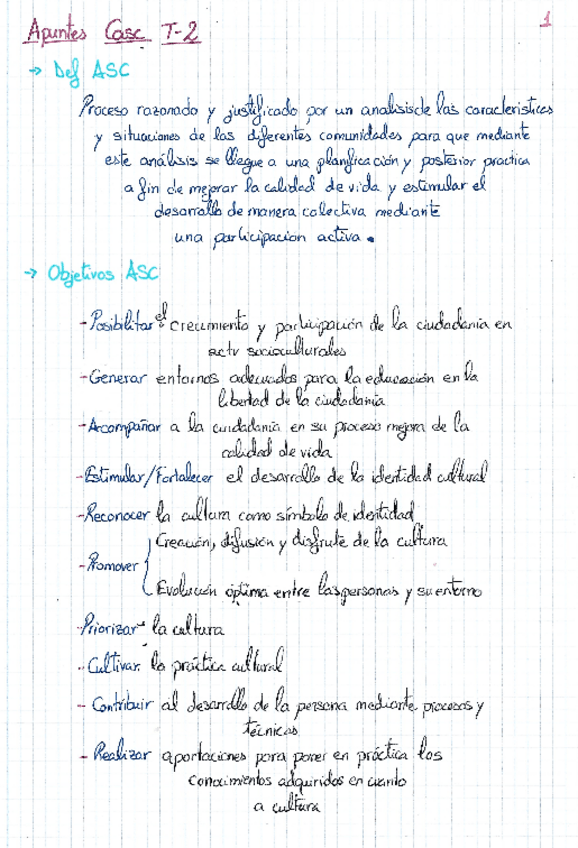 Apuntes Casc T-2
1
→ Def ASC
Proceso razonado y justificado por un analisis de las caracteristicas
y situaciones de las diferentes comunidades para que mediante
este análisis se llegue a una planificación y posterior practica
a fin de mejorar la calidad de vida y estimular el
desarrollo de manera colectiva mediante
una participacion activa.
→ Objetivos ASC
- Posibilitar el crecimiento y participación de la ciudadania en
actv socioculturales
- Generar entornos adecuados para la educación en la
libertad de la ciudadania
- Acompañar a la ciudadania en su proceso mejora de la
calidad de vida
- Estimular/Fortalecer el desarrollo de la identidad cultural
- Reconocer la cultura como símbolo de identidad
Creación, difusión y disfrute de la cultura
- Promover {
Evolución óptima entre las personas y su entorno
- Priorizar la cultura
- Cultivar la práctica cultural
- Contribuir al desarrollo de la persona mediante procesos y
técnicas
- Realizar aportaciones para poner en práctica los
conocimientos adquiridos en cuanto
a cultura